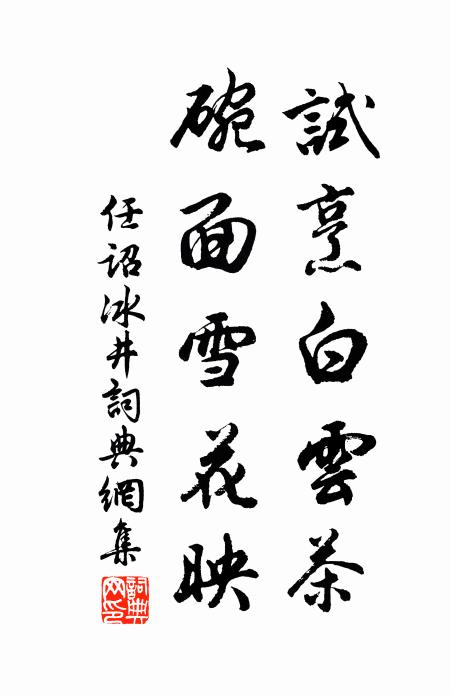 試烹白雲茶
碗面雪花映
任詔冰井詞典網集
詞典网印